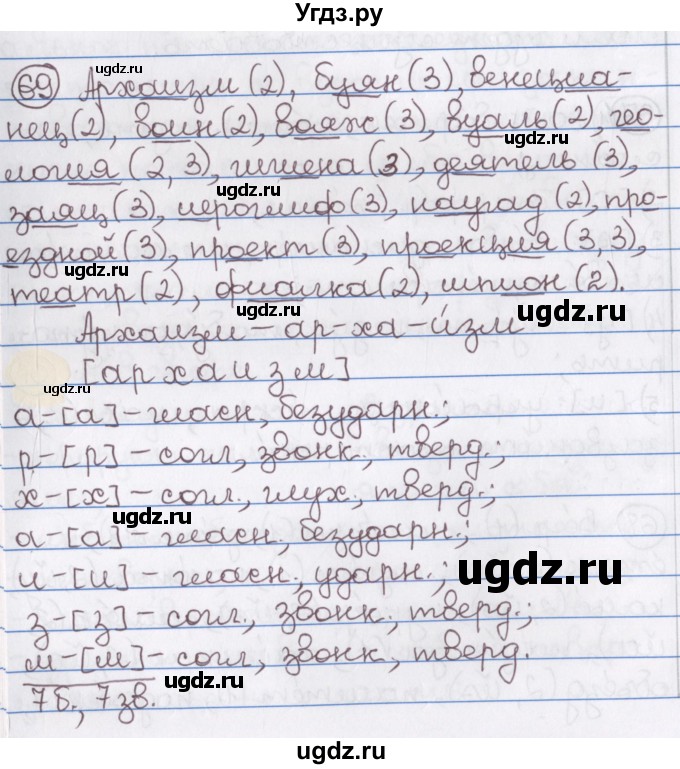 Угдз.ру
69 Архаизм (2), буян (3), венециа-
нец (2), воин (2), вояж (3), вуаль (2), гео-
логия (2, 3), гигиена (3), деятель (3),
заяц (3), иероглиф (3), наугад (2), про-
ездной (3), проект (3), проекция (3,3),
театр (2), фиалка (2), шпион (2).
Архаизм - ар-ха-и́зм
[архаизм]
а-[а]-гласн, безударн.;
р-[р] - согл., звонк., тверд.;
х-[х] - согл., глух., тверд.;
а-[а]-гласн., безударн.;
и-[и]-гласн., ударн.;
з-[з]-согл., звонк., тверд.;
м-[м]-согл., звонк., тверд.
7б., 7 зв.
ugdz.ru
ugdz.ru
ugdz.ru
ugdz.ru
ugdz.ru
ugdz.ru
ugdz.ru
ugdz.ru
ugdz.ru
ugdz.ru
ugdz.ru